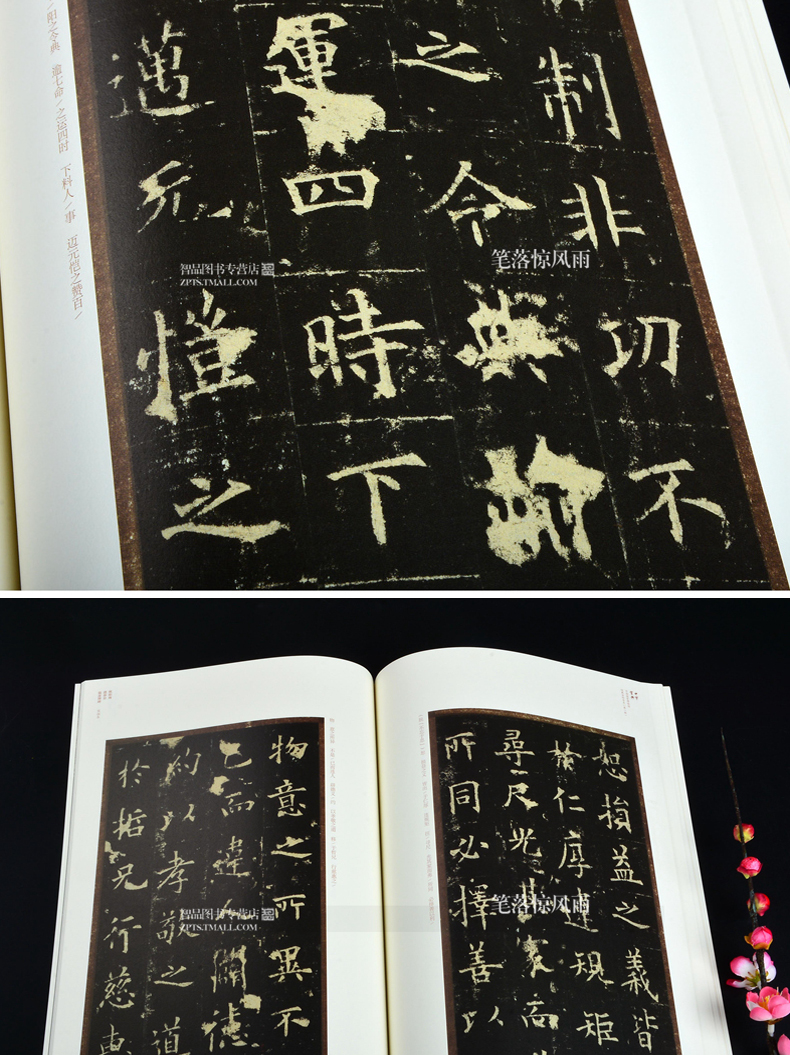 制非切不
之令典
運四時下
邁元愷之
/阳之令典 逾七命/之运四时 下料人/事 迈元恺之赞百/
智品图书专营店
ZPTS.TMALL.COM
笔落惊风雨
恕損益之義皆
於仁厚建規矩
尋尺光其家而
所同必擇善以
物意之所異不
己而違人關德
約以孝敬之道
於哲兄行慈惠
智品图书专营店
ZPTS.TMALL.COM
笔落惊风雨